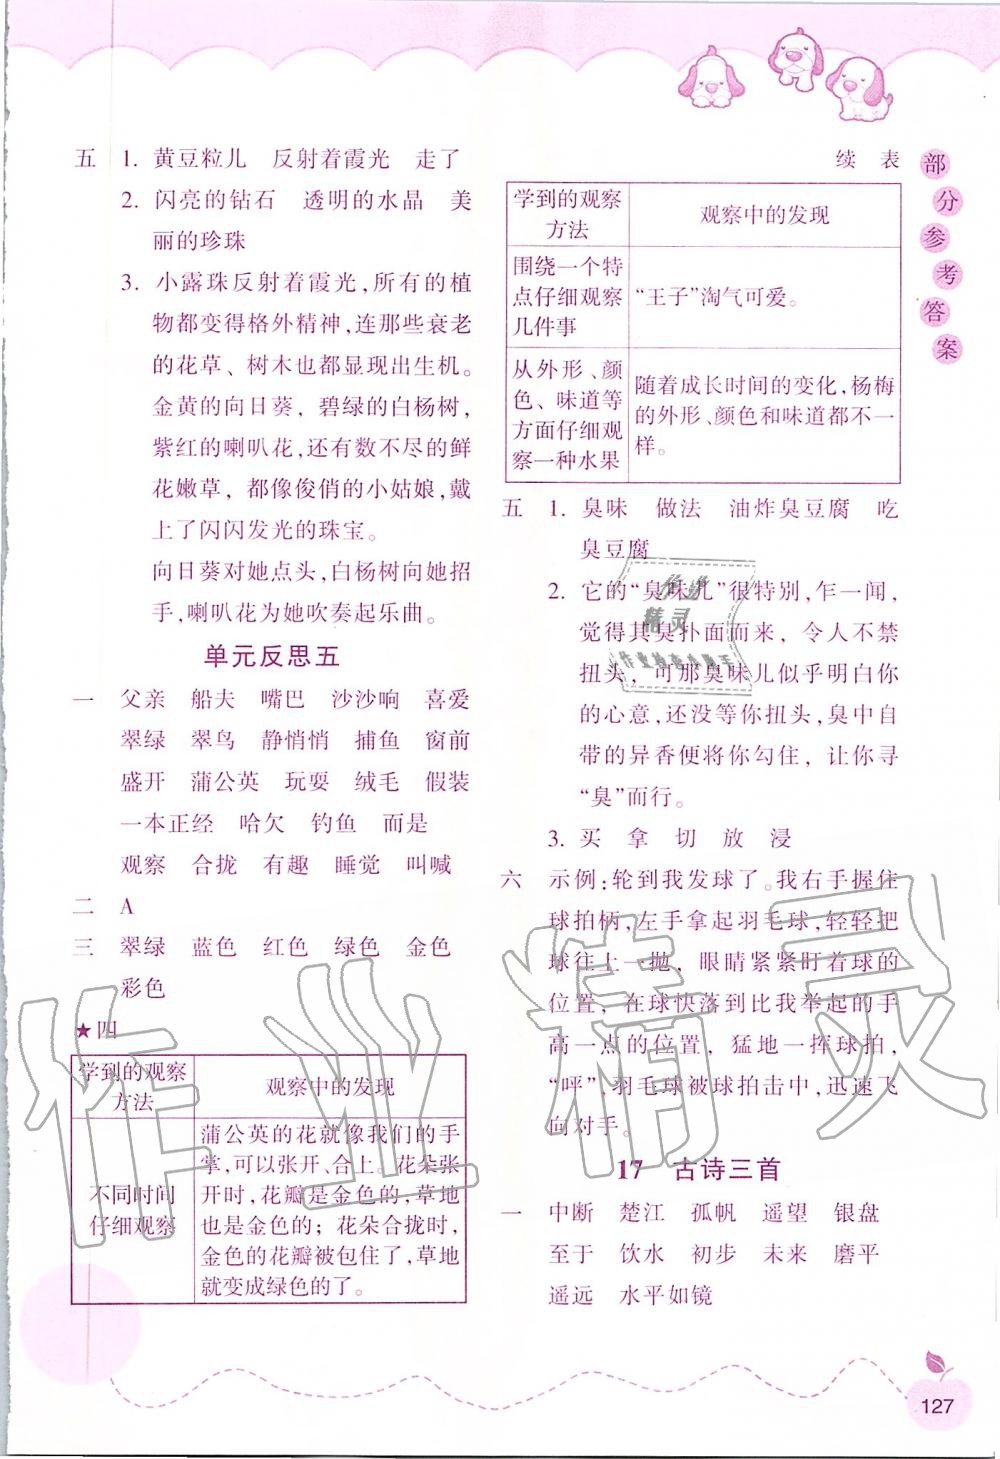 五 1. 黄豆粒儿 反射着霞光 走了
2. 闪亮的钻石 透明的水晶 美
丽的珍珠
3. 小露珠反射着霞光,所有的植
物都变得格外精神,连那些衰老
的花草、树木也都显现出生机。
金黄的向日葵,碧绿的白杨树,
紫红的喇叭花,还有数不尽的鲜
花嫩草,都像俊俏的小姑娘,戴
上了闪闪发光的珠宝。
向日葵对她点头,白杨树向她招
手,喇叭花为她吹奏起乐曲。
单元反思五
一 父亲 船夫 嘴巴 沙沙响 喜爱
翠绿 翠鸟 静悄悄 捕鱼 窗前
盛开 蒲公英 玩耍 绒毛 假装
一本正经 哈欠 钓鱼 而是
观察 合拢 有趣 睡觉 叫喊
二 A
三 翠绿 蓝色 红色 绿色 金色
彩色
★四
学到的观察
方法
观察中的发现
不同时间
仔细观察
蒲公英的花就像我们的手
掌,可以张开、合上。花朵张
开时,花瓣是金色的,草地
也是金色的;花朵合拢时,
金色的花瓣被包住了,草地
就变成绿色的了。
续 表
学到的观察
方法
观察中的发现
围绕一个特
点仔细观察
几件事
“王子”淘气可爱。
从外形、颜
色、味道等
方面仔细观
察一种水果
随着成长时间的变化,杨梅
的外形、颜色和味道都不一
样。
五 1. 臭味 做法 油炸臭豆腐 吃
臭豆腐
2. 它的“臭味儿”很特别,乍一闻,
觉得其臭扑面而来,令人不禁
扭头,可那臭味儿似乎明白你
的心意,还没等你扭头,臭中自
带的异香便将你勾住,让你寻
“臭”而行。
3. 买 拿 切 放 浸
六 示例:轮到我发球了。我右手握住
球拍柄,左手拿起羽毛球,轻轻把
球往上一抛,眼睛紧紧盯着球的
位置,在球快落到比我举起的手
高一点的位置,猛地一挥球拍,
“呯”,羽毛球被球拍击中,迅速飞
向对手。
17 古诗三首
一 中断 楚江 孤帆 遥望 银盘
至于 饮水 初步 未来 磨平
遥远 水平如镜
部分参考答案
127
作业精灵
作业精灵
作业检查小助手